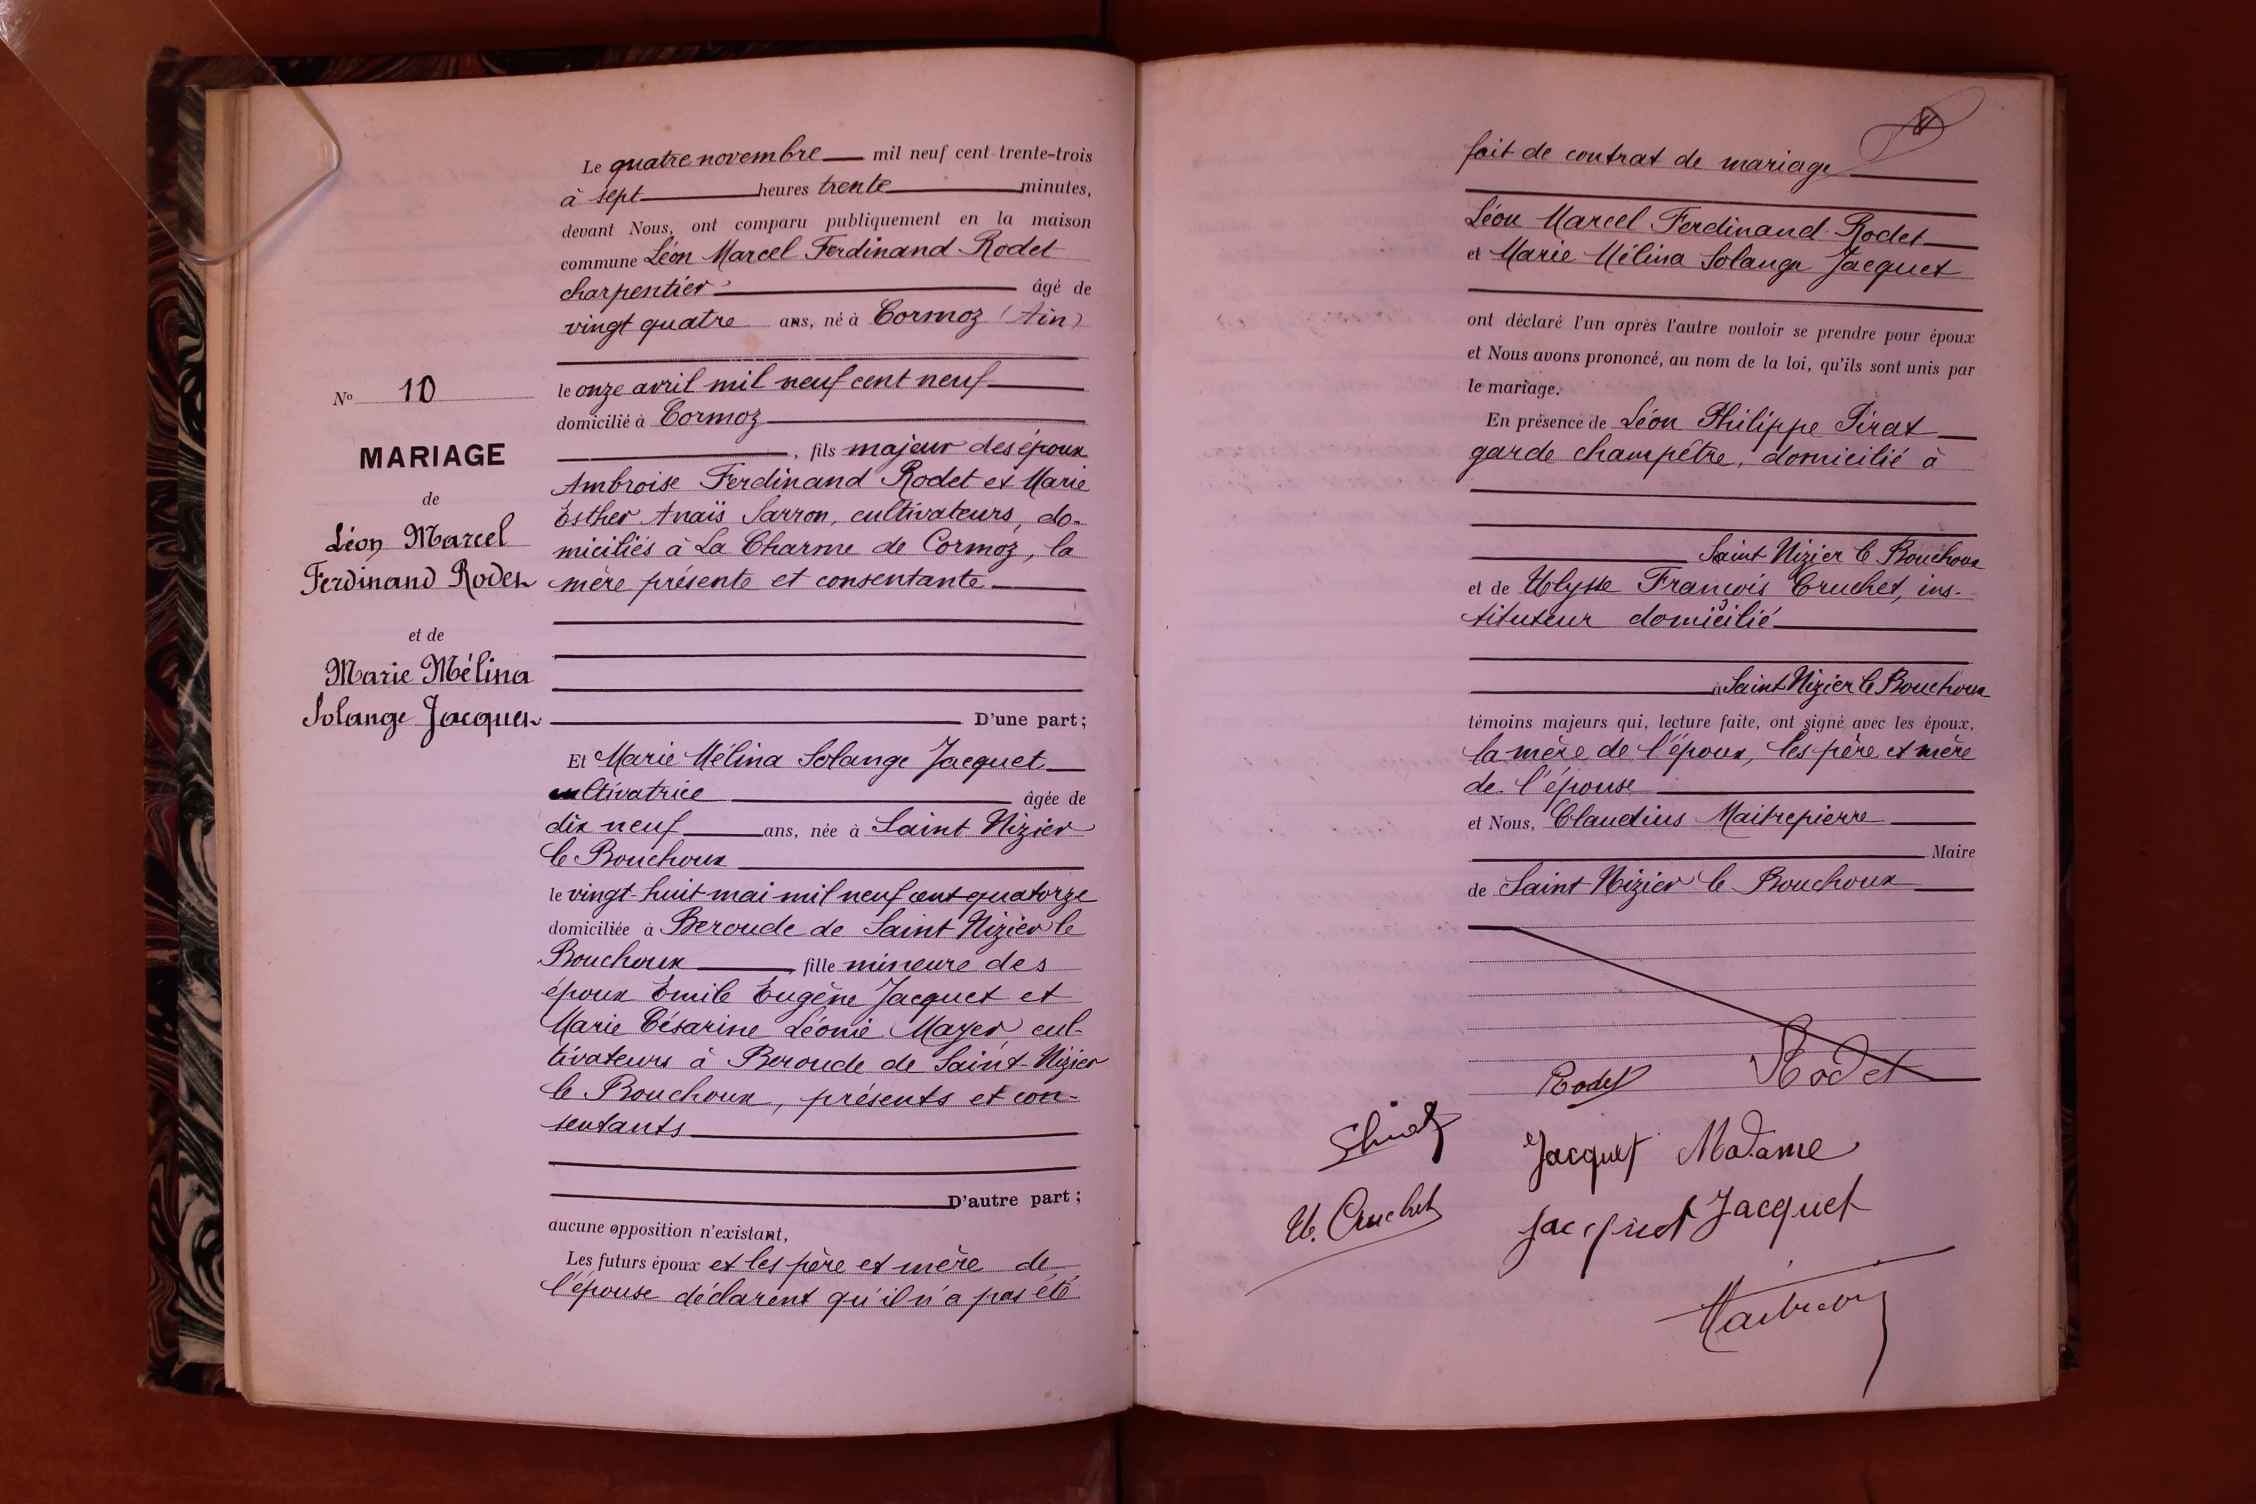 Le quatre novembre mil neuf cent trente-trois
à sept heures trente minutes,
devant Nous, ont comparu publiquement en la maison
commune Léon Marcel Ferdinand Rodet
charpentier âgé de
vingt quatre ans, né à Cormoz (Ain)
le onze avril mil neuf cent neuf
domicilié à Cormoz
, fils majeur des époux
Ambroise Ferdinand Rodet et Marie
Esther Anaïs Sarron, cultivateurs, do-
miciliés à La Charme de Cormoz, la
mère présente et consentante
D'une part;
No 10
MARIAGE
de
Léon Marcel
Ferdinand Rodet
et de
Marie Mélina
Solange Jacquet
Et Marie Mélina Solange Jacquet
cultivatrice âgée de
dix neuf ans, née à Saint Nizier
le Bouchoux
le vingt-huit mai mil neuf cent quatorze
domiciliée à Beroude de Saint Nizier le
Bouchoux, fille mineure des
époux Émile Eugène Jacquet et
Marie Césarine Léonie Mayer, cul-
tivateurs à Beroude de Saint-Nizier
le Bouchoux, présents et con-
sentants
D'autre part;
aucune opposition n'existant,
Les futurs époux et les père et mère de
l'épouse déclarent qu'il n'a pas été
fait de contrat de mariage
Léon Marcel Ferdinand Rodet
et Marie Mélina Solange Jacquet
ont déclaré l'un après l'autre vouloir se prendre pour époux
et Nous avons prononcé, au nom de la loi, qu'ils sont unis par
le mariage.
En présence de Léon Philippe Pirat
garde champêtre, domicilié à
Saint Nizier le Bouchoux
et de Ulysse François Cruchet, ins-
tituteur domicilié
à Saint Nizier le Bouchoux
témoins majeurs qui, lecture faite, ont signé avec les époux,
la mère de l'époux, les père et mère
de l'épouse
et Nous, Claudius Maitrepierre
Maire
de Saint-Nizier le Bouchoux
Rodet Rodet
Jacquet Madame
U. Cruchet Jacquet Jacquet